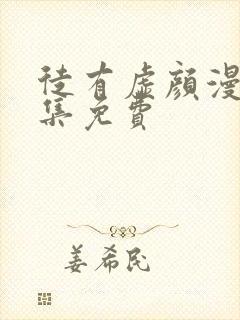 徒有虚颜漫
集免費
姜希民